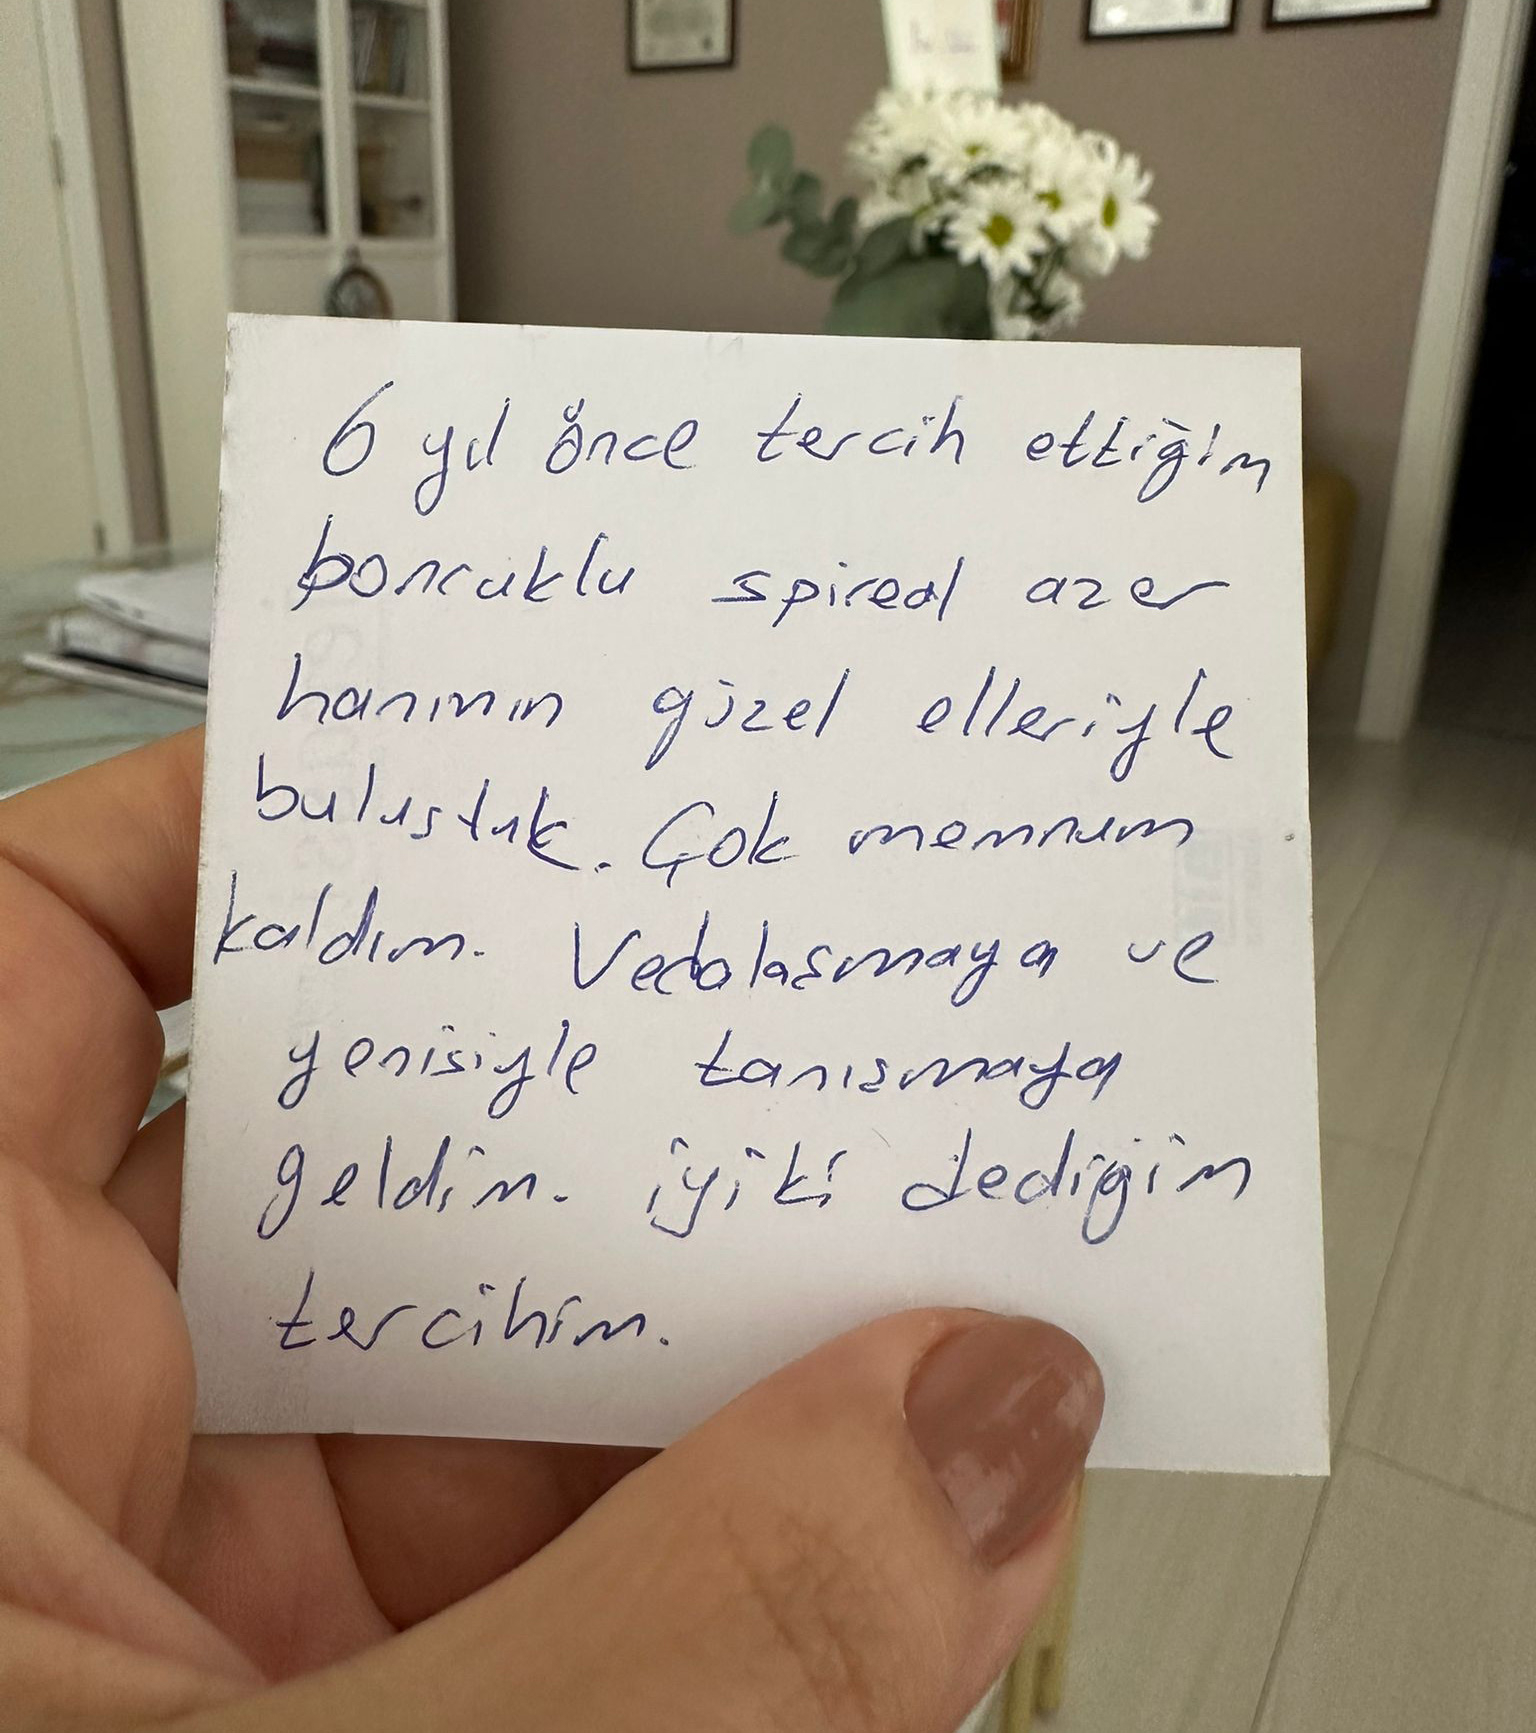 6 yıl önce tercih ettiğim
boncuklu spireal azer
hanımın güzel elleriyle
buluştuk. Çok memnum
kaldım. Vedalaşmaya ve
yenisiyle tanışmaya
geldim. iyiki dediğim
tercihim.